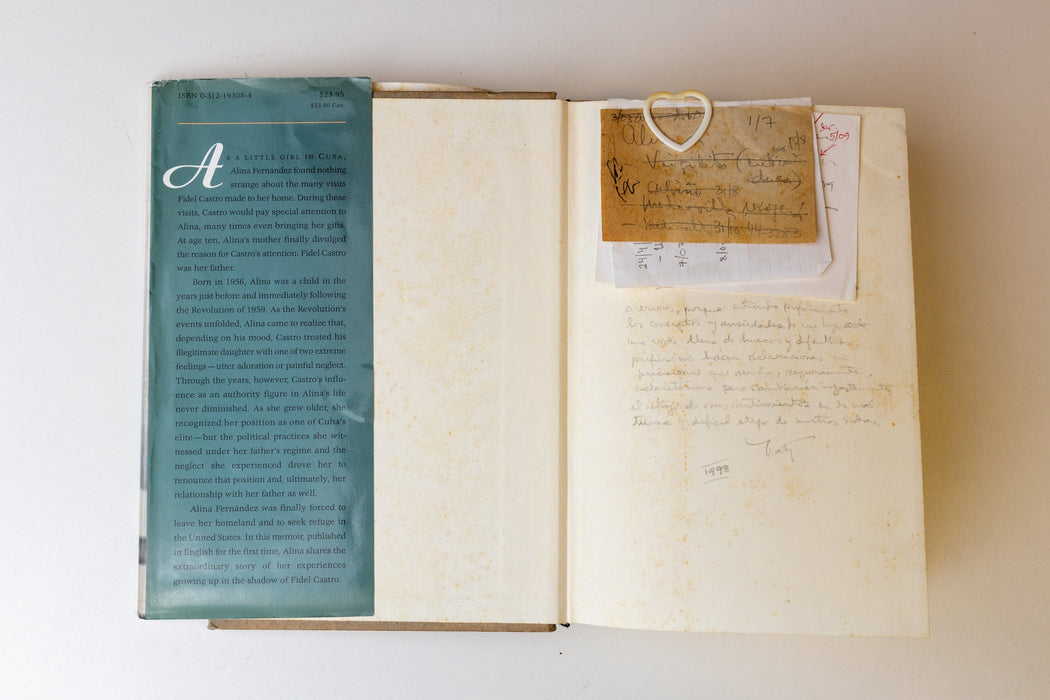 ISBN 0-312-19308-4 $23.95
$33.50 Can.
AS A LITTLE GIRL IN CUBA,
Alina Fernández found nothing
strange about the many visits
Fidel Castro made to her home. During these
visits, Castro would pay special attention to
Alina, many times even bringing her gifts.
At age ten, Alina's mother finally divulged
the reason for Castro's attention: Fidel Castro
was her father.
Born in 1956, Alina was a child in the
years just before and immediately following
the Revolution of 1959. As the Revolution's
events unfolded, Alina came to realize that,
depending on his mood, Castro treated his
illegitimate daughter with one of two extreme
feelings—utter adoration or painful neglect.
Through the years, however, Castro's influ-
ence as an authority figure in Alina's life
never diminished. As she grew older, she
recognized her position as one of Cuba's
elite—but the political practices she wit-
nessed under her father's regime and the
neglect she experienced drove her to
renounce that position and, ultimately, her
relationship with her father as well.
Alina Fernández was finally forced to
leave her homeland and to seek refuge in
the United States. In this memoir, published
in English for the first time, Alina shares the
extraordinary story of her experiences
growing up in the shadow of Fidel Castro.
1/7
Virgilito
3/8
recoger
31/10
5/09
7/07
porque
los conceptos y ansiedades de
una vida llena de huecos y
prefiero no hacer aclaraciones, ni
precisiones que serían, seguramente,
pero
el reflejo de sus sentimientos en
tierna y difícil etapa de nuestras vidas.
1998